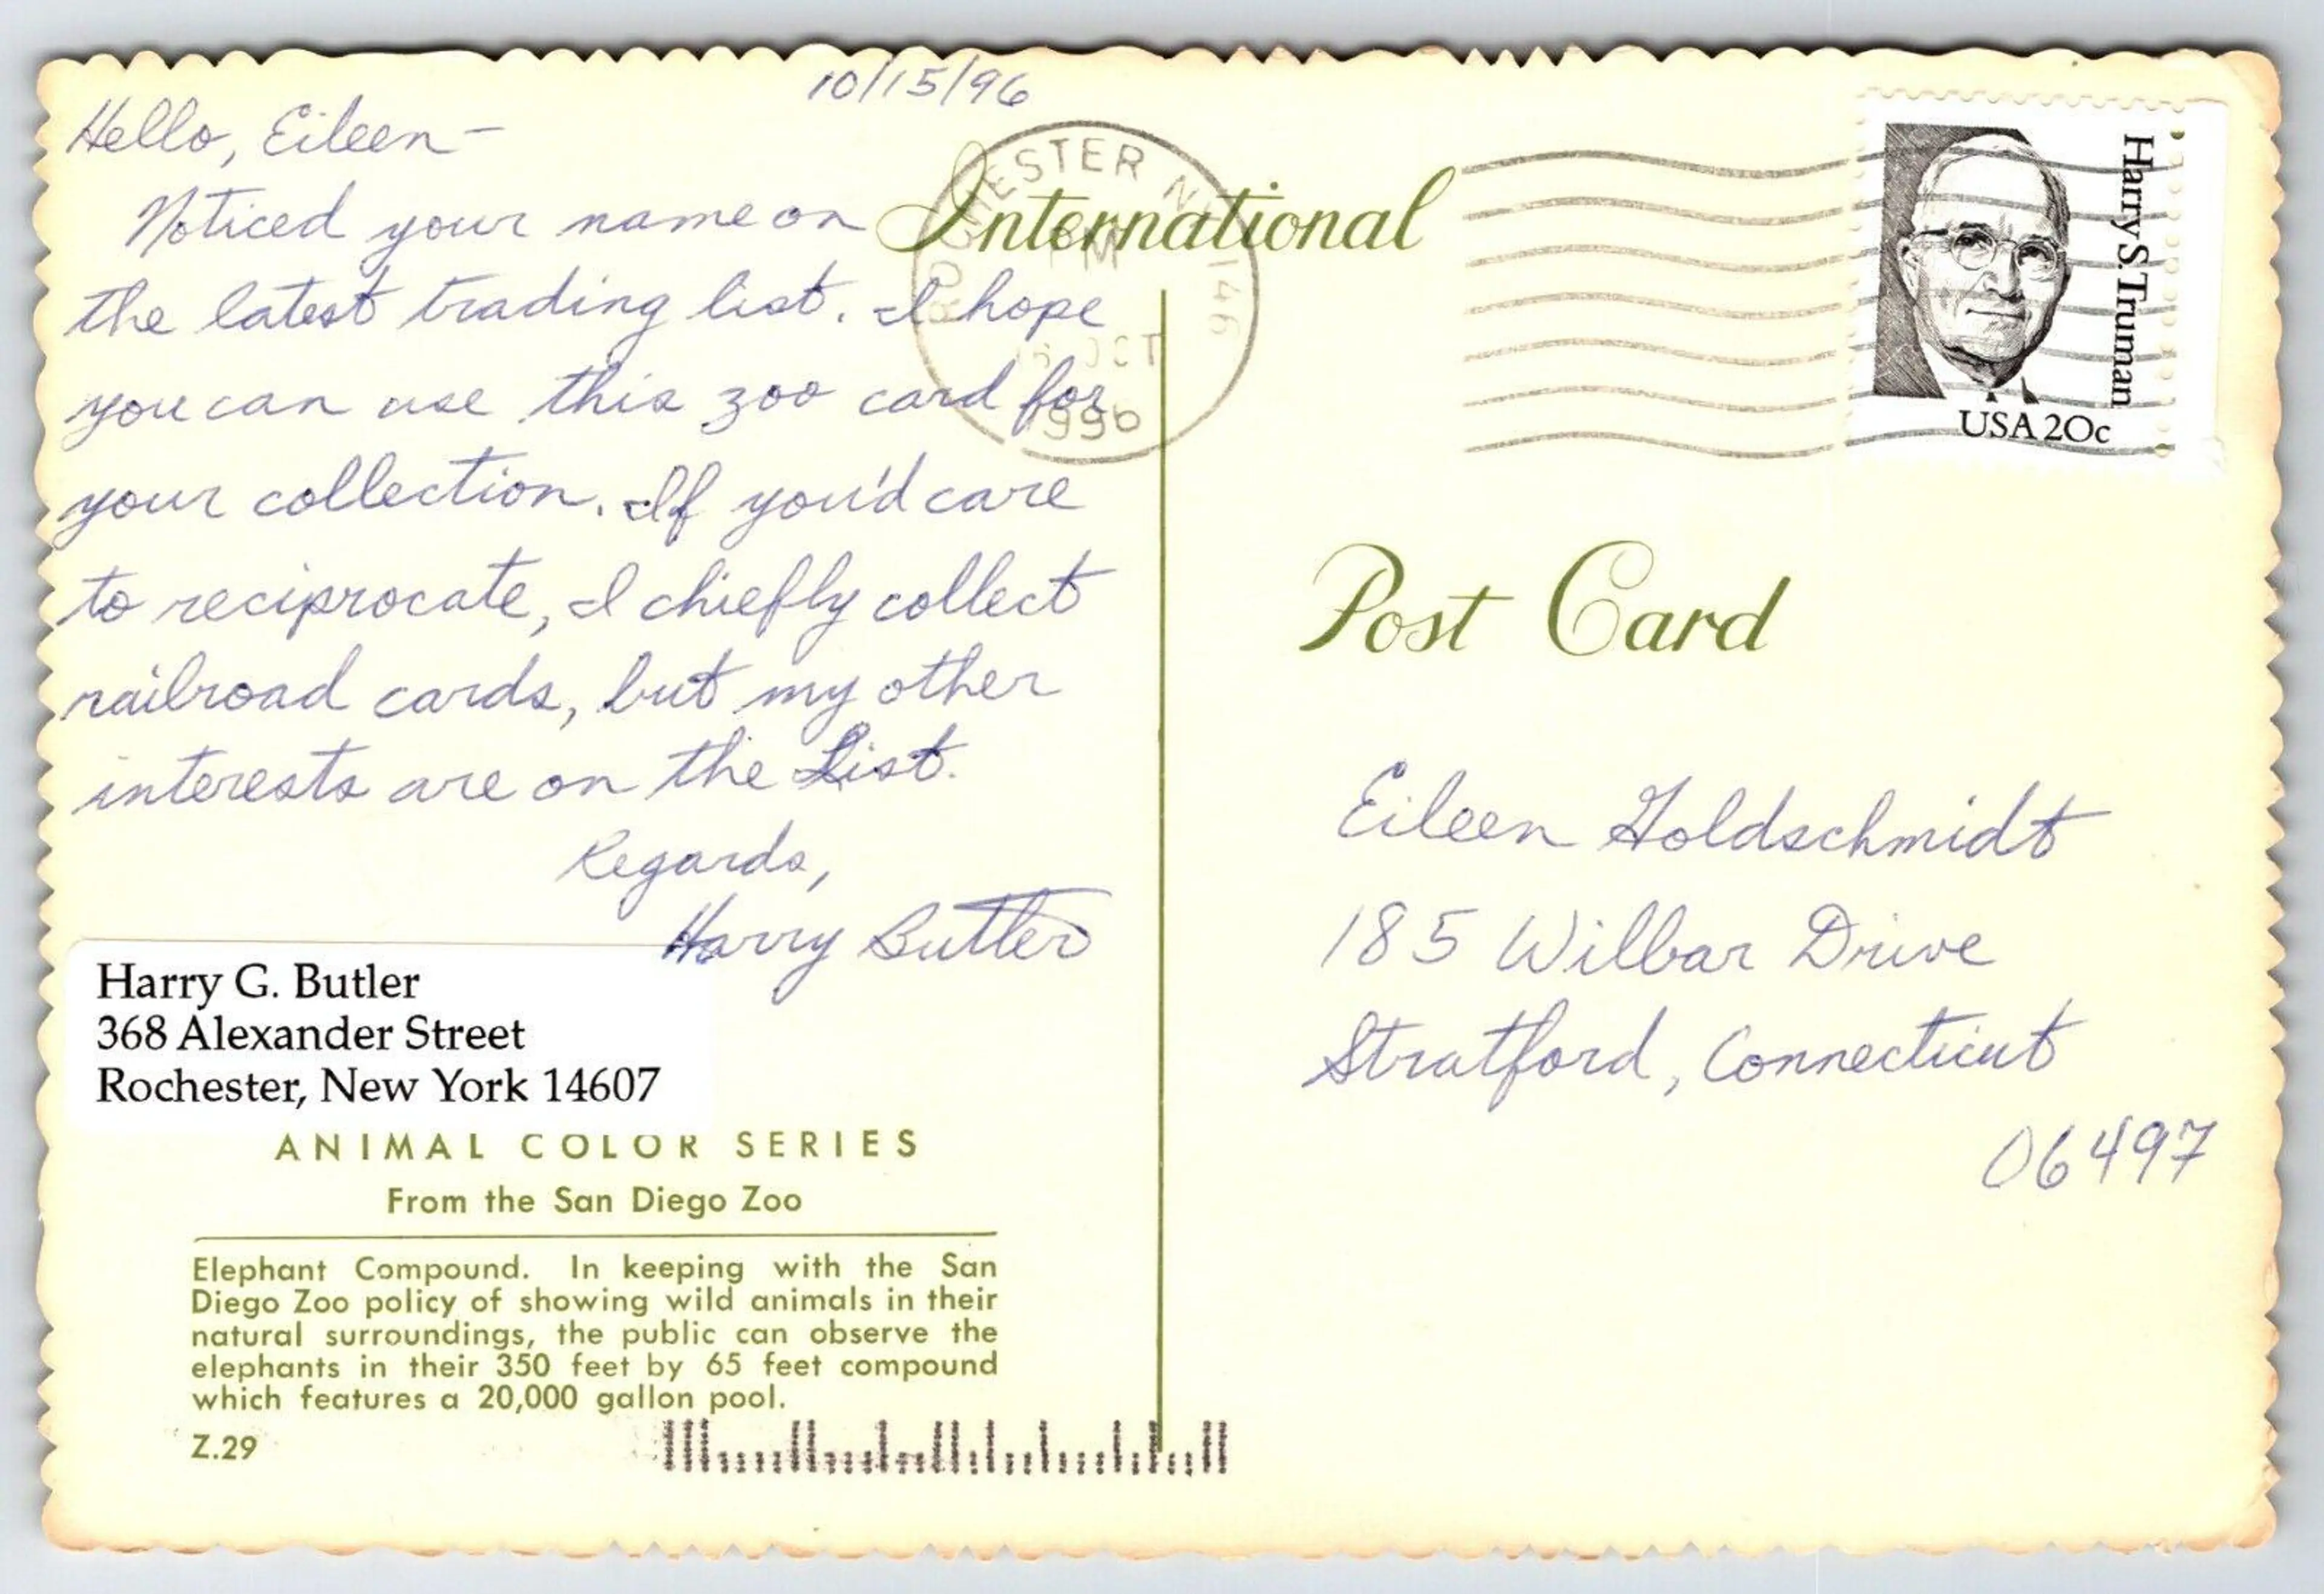 10/15/96
Hello, Eileen-
Noticed your name on
the latest trading list. I hope
you can use this zoo card for
your collection. If you'd care
to reciprocate, I chiefly collect
railroad cards, but my other
interests are on the List.
Regards,
Harry Butler
Harry G. Butler
368 Alexander Street
Rochester, New York 14607
ANIMAL COLOR SERIES
From the San Diego Zoo
Elephant Compound. In keeping with the San
Diego Zoo policy of showing wild animals in their
natural surroundings, the public can observe the
elephants in their 350 feet by 65 feet compound
which features a 20,000 gallon pool.
Z.29
International
ROCHESTER N 146
PM
OCT
1996
Harry S. Truman
USA 20c
Post Card
Eileen Goldschmidt
185 Wilbar Drive
Stratford, Connecticut
06497